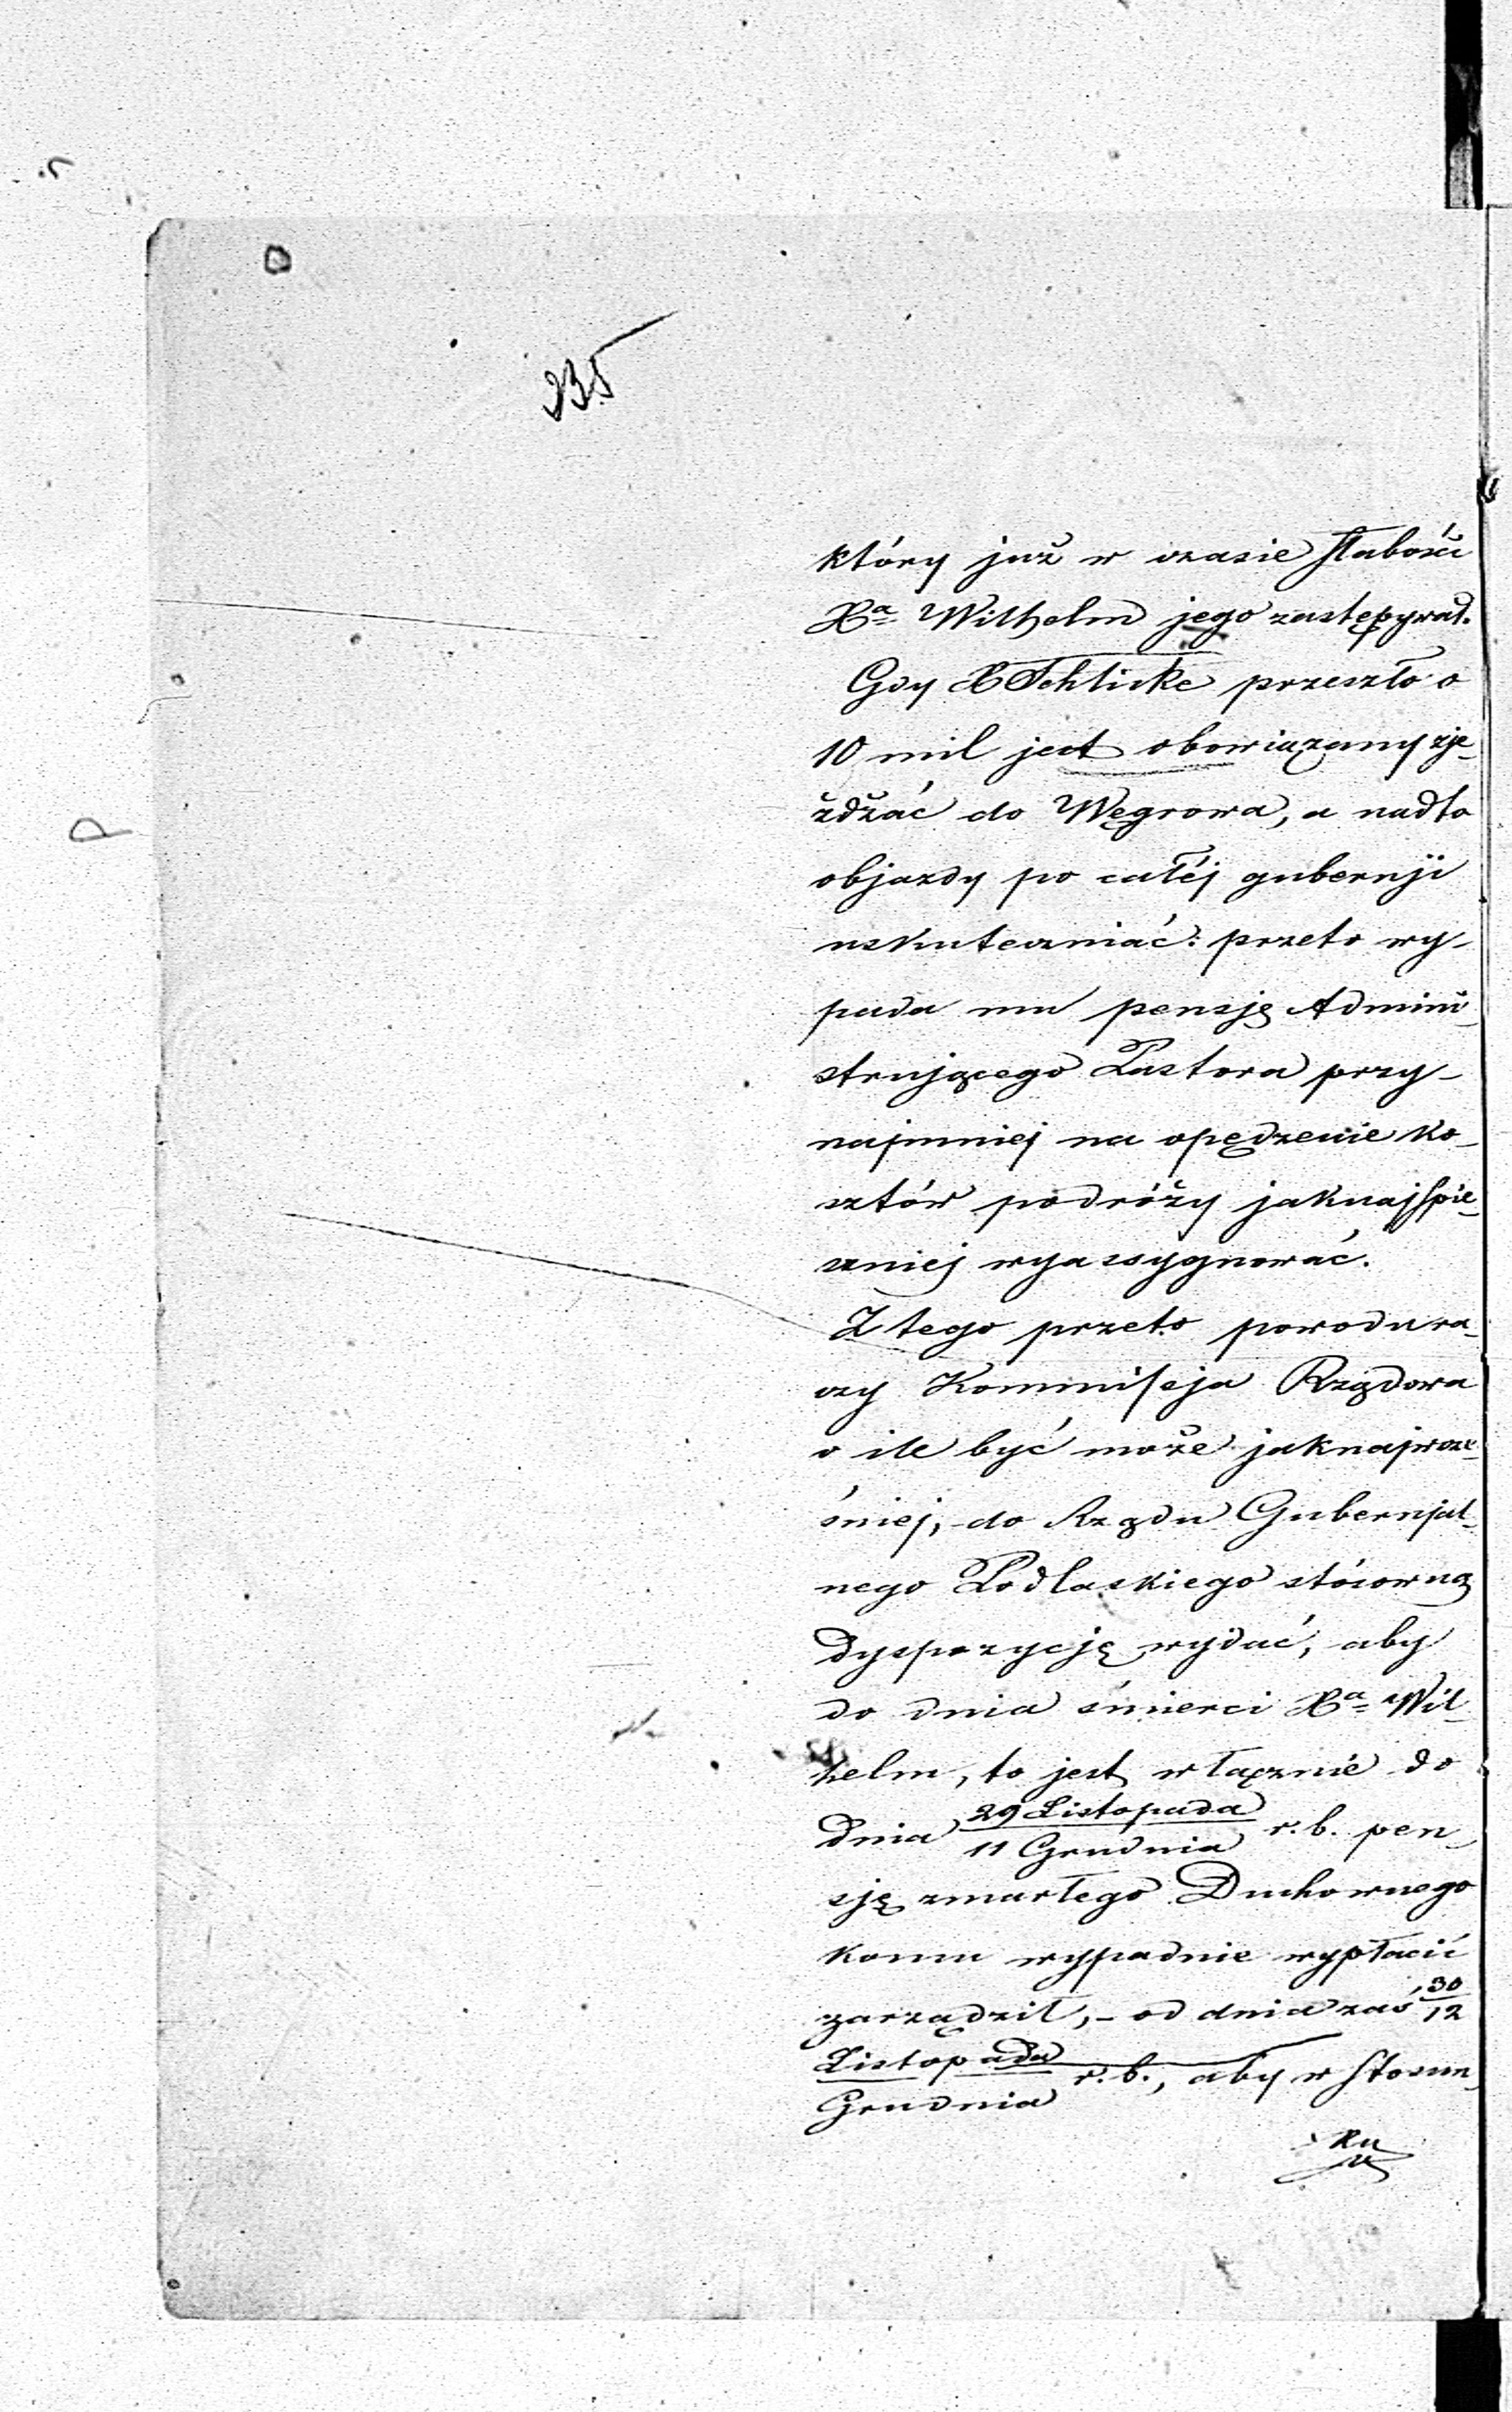 235
który już w czasie słabości
Xa Wilhelm jego zastępywał.
Gdy X Schlicke przeszło o
10 mil jest obowiązany zje-
żdżać do Węgrowa, a nadto
objazdy po całéj gubernji
uskuteczniać: przeto wy-
pada mu pensję Admini-
strującego Pastora przy-
najmniej na opędzenie ko-
sztów podróży jaknajspie-
szniej wyassygnować.
Z tego przeto powodu ra-
czy Kommissja Rządowa
o ile być może jaknajwcze-
śniej, do Rządu Gubernjal-
nego Podlaskiego stósowną
dyspozycję wydać, aby
do dnia śmierci Xa Wil-
helm, to jest włącznie do
dnia 29 Listopada / 11 Grudnia r. b. pen-
sję zmarłego Duchownego
komu wypadnie wypłacić
zarządził, - od dnia zaś 30/12
Listopada / Grudnia r. b., aby w stosun-
ku